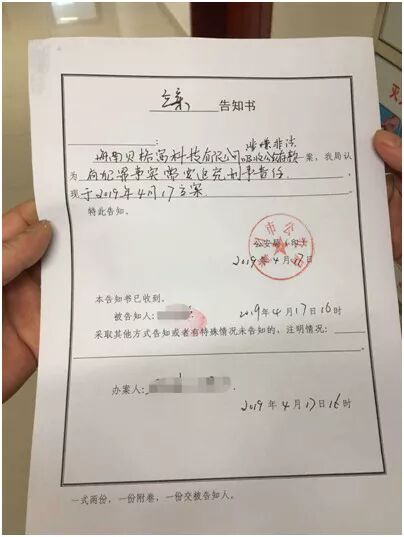 立案 告知书
：
海南贝格富科技有限公司涉嫌非法吸收公存款一案，我局认
为 有犯罪事实需要追究刑事责任
现于2019年4月17立案。
特此告知。
公安局（印）
2019年4月17日
本告知书已收到。
被告知人：
2019年4月17日16时
采取其他方式告知或者有特殊情况未告知的，注明情况：
办案人：
2019年4月17日16时
一式两份，一份附卷，一份交被告知人。